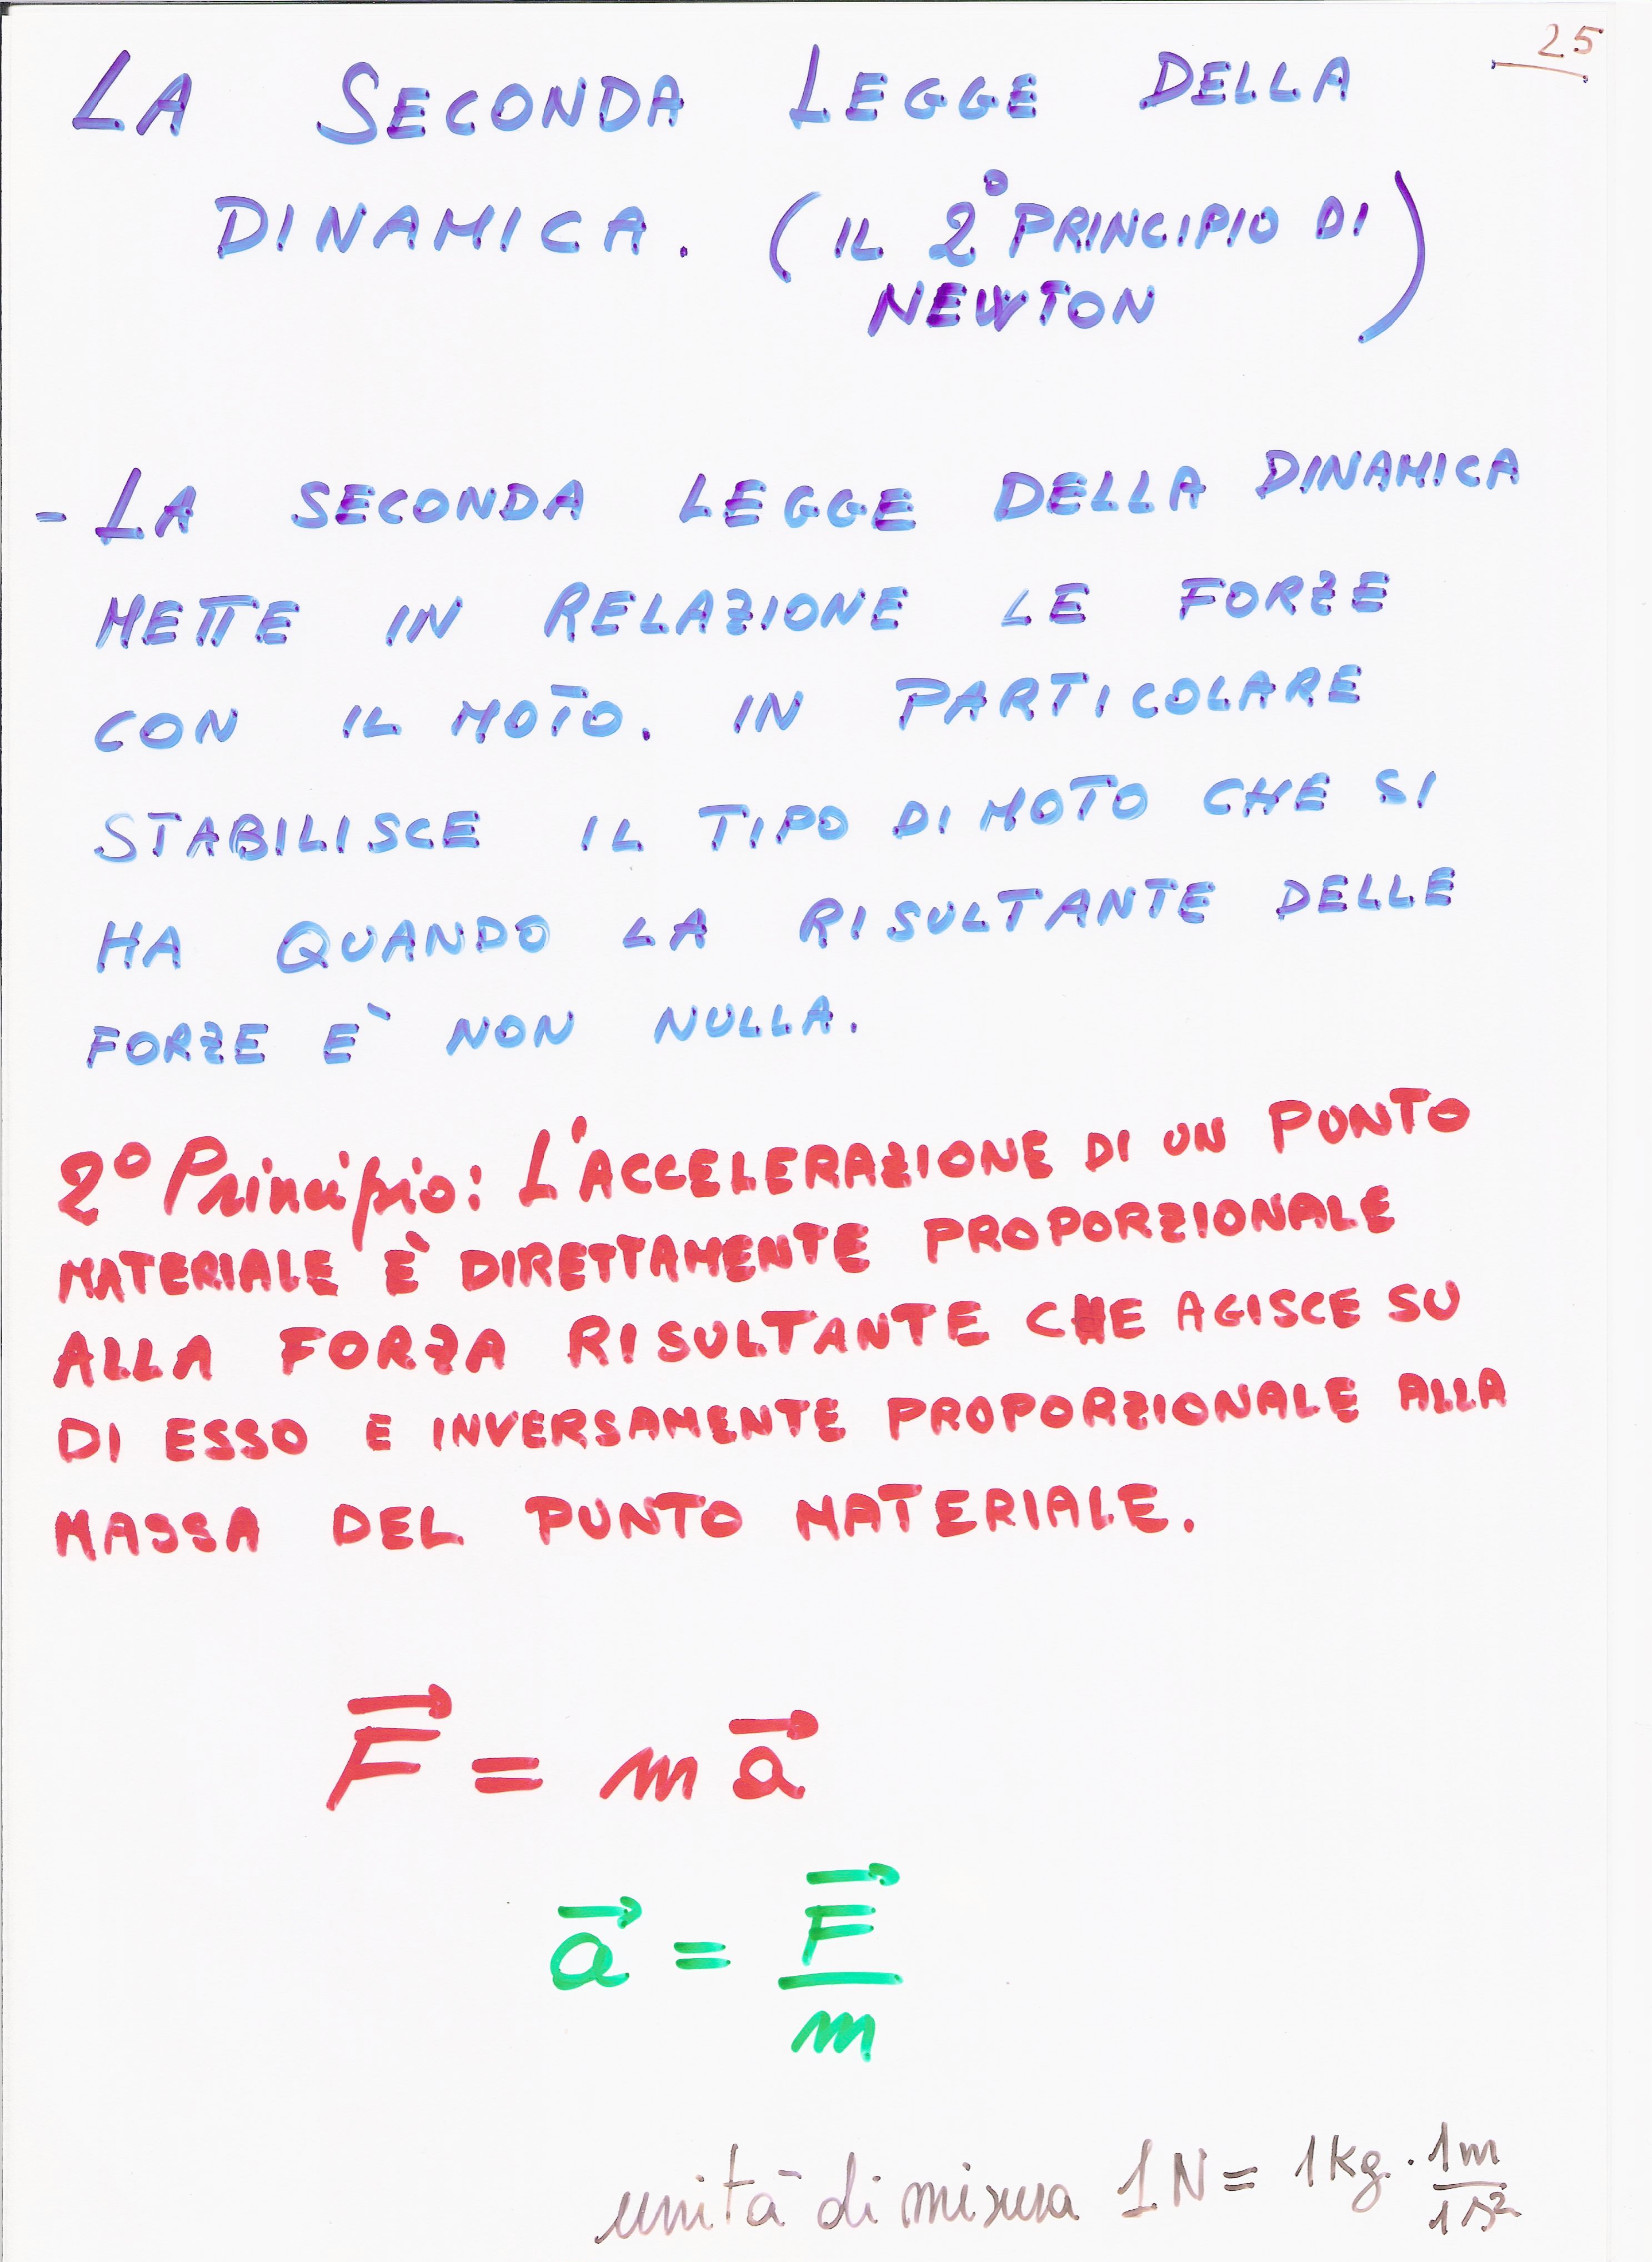 25
LA SECONDA LEGGE DELLA
DINAMICA. (IL 2° PRINCIPIO DI
NEWTON)
- LA SECONDA LEGGE DELLA DINAMICA
METTE IN RELAZIONE LE FORZE
CON IL MOTO. IN PARTICOLARE
STABILISCE IL TIPO DI MOTO CHE SI
HA QUANDO LA RISULTANTE DELLE
FORZE E' NON NULLA.
2° Principio: L'ACCELERAZIONE DI UN PUNTO
MATERIALE È DIRETTAMENTE PROPORZIONALE
ALLA FORZA RISULTANTE CHE AGISCE SU
DI ESSO E INVERSAMENTE PROPORZIONALE ALLA
MASSA DEL PUNTO MATERIALE.
F⃗ = m a⃗
a⃗ = F⃗ / m
unità di misura 1N = 1kg · 1m / 1s²